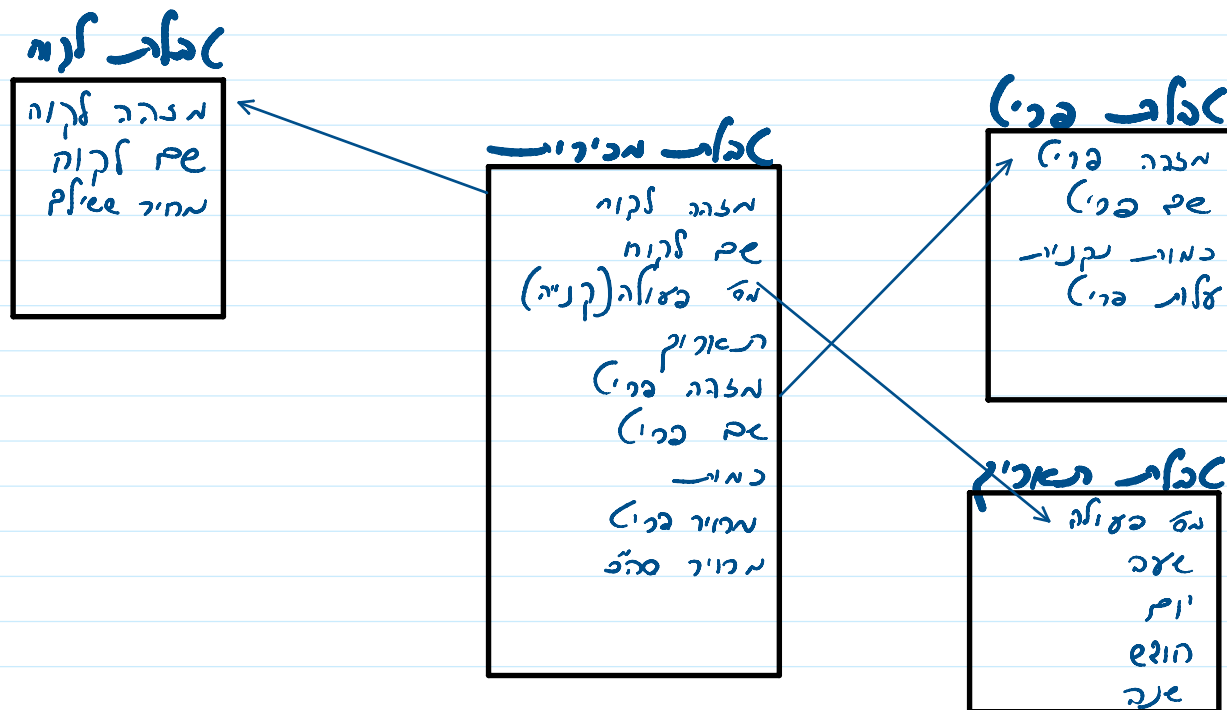 טבלת לקוח
מזהה לקוח
שם לקוח
מחיר ששילם
טבלת מכירות
מזהה לקוח
שם לקוח
מס' פעולה (קנייה)
תאריך
מזהה פריט
שם פריט
כמות
מחיר פריט
מחיר סה"כ
טבלת פריט
מזהה פריט
שם פריט
כמות נקנית
עלות פריט
טבלת תאריך
מס' פעולה
שעה
יום
חודש
שנה